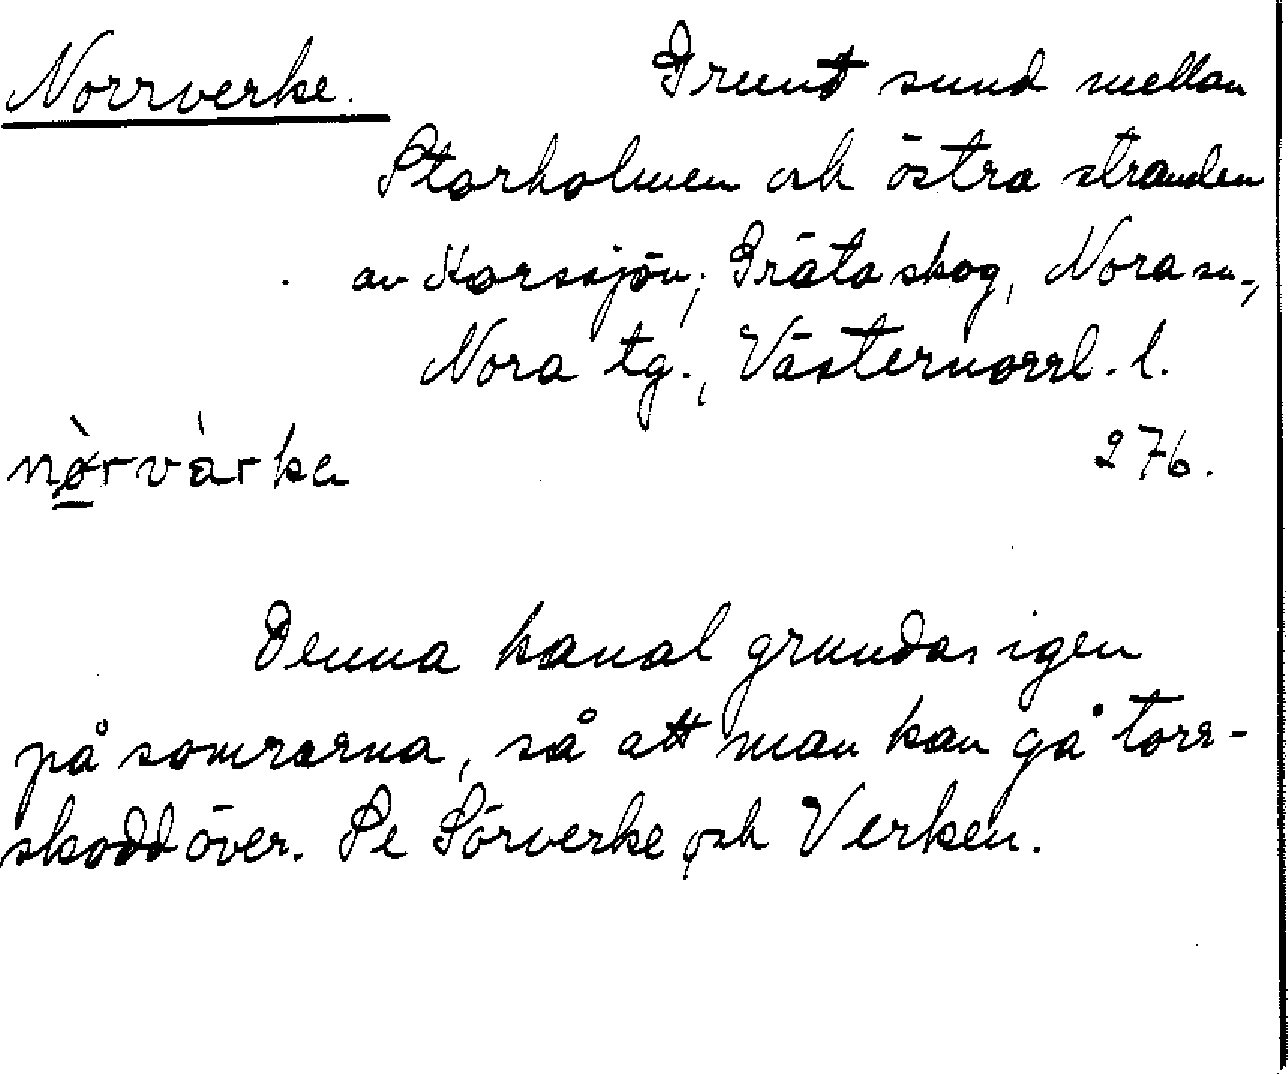 Norrverke. Grunt sund mellan
Storholmen och östra stranden
av Norasjön, Träta skog, Nora sn.,
Nora tg., Västernorrl. l.
nø̀rvàrke 276.
Denna kanal grundas igen
på somrarna, så att man kan gå torr-
skodd över. Se Sörverke och Verken.